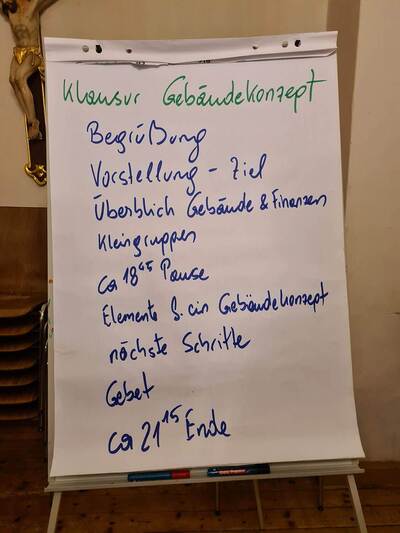 Klausur Gebäudekonzept
Begrüßung
Vorstellung - Ziel
Überblick Gebäude & Finanzen
Kleingruppen
ca 18⁴⁵ Pause
Elemente f. ein Gebäudekonzept
nächste Schritte
Gebet
ca 21¹⁵ Ende